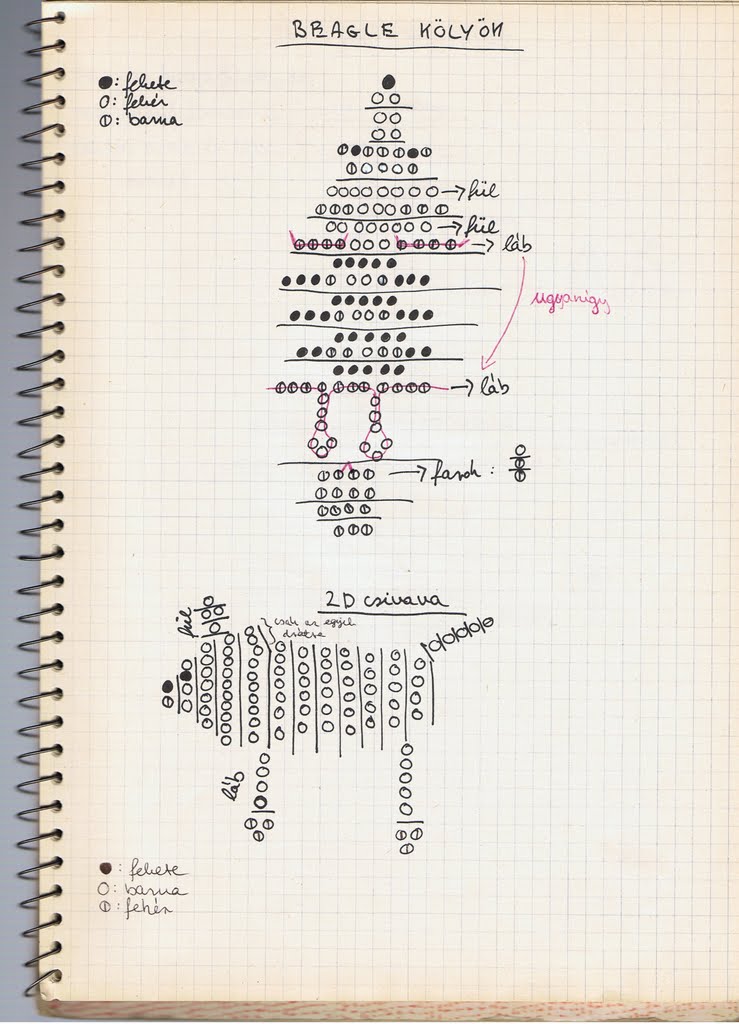 BEAGLE KÖLYÖK
●: fekete
○: fehér
⦶: barna
→ fül
→ fül
→ láb
ugyanígy
→ láb
→ farok :
2D csivava
fül
csak az egyik
drótra
láb
●: fekete
○: barna
⦶: fehér